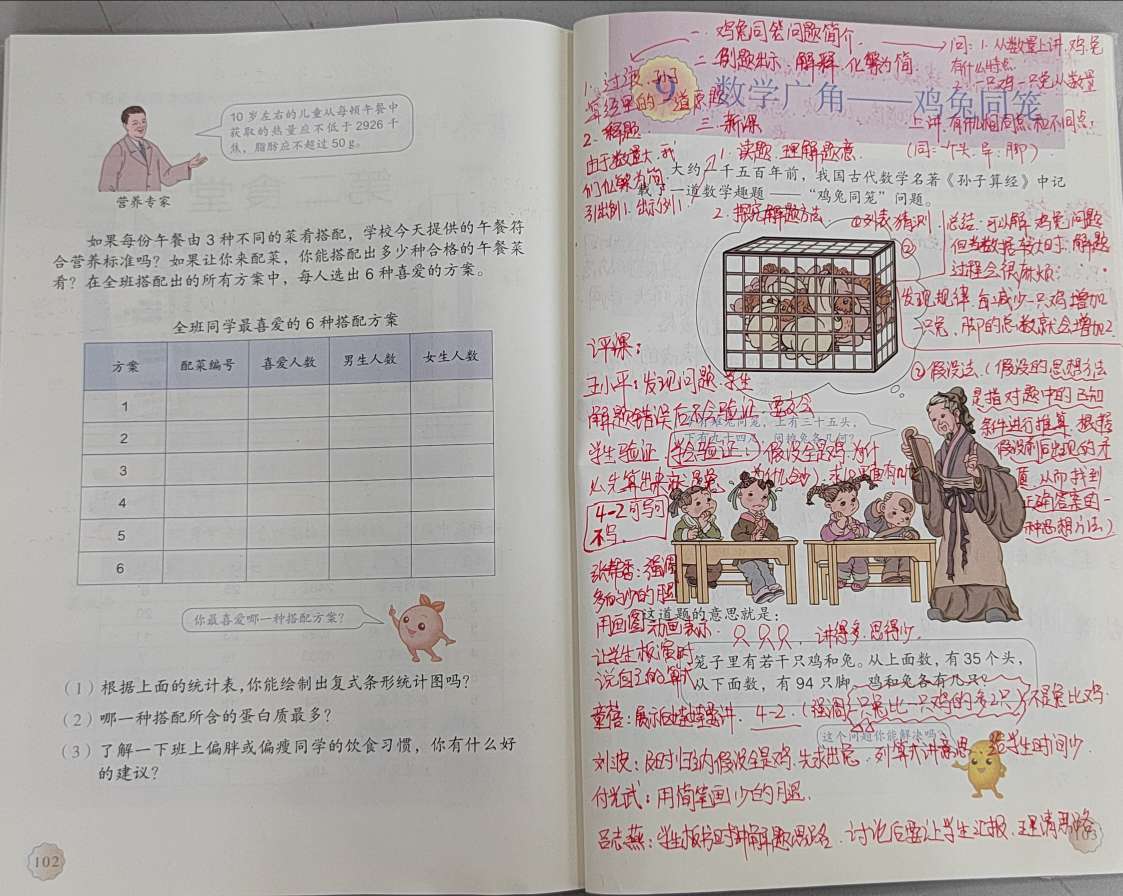 10 岁左右的儿童从每顿午餐中
获取的热量应不低于 2926 千
焦，脂肪应不超过 50 g。
营养专家
如果每份午餐由 3 种不同的菜肴搭配，学校今天提供的午餐符
合营养标准吗？如果让你来配菜，你能搭配出多少种合格的午餐菜
肴？在全班搭配出的所有方案中，每人选出 6 种喜爱的方案。
全班同学最喜爱的 6 种搭配方案
方案 配菜编号 喜爱人数 男生人数 女生人数
1
2
3
4
5
6
你最喜爱哪一种搭配方案？
（1）根据上面的统计表，你能绘制出复式条形统计图吗？
（2）哪一种搭配所含的蛋白质最多？
（3）了解一下班上偏胖或偏瘦同学的饮食习惯，你有什么好
的建议？
102
一. 鸡兔同笼问题简介
问：1. 从数量上讲，鸡兔
有什么特点
二 例题出示，解释，化繁为简
2. 一只鸡一只兔从数量
上讲，有什么相同点和不同点；
（同：个头，异：脚）
9 数学广角——鸡兔同笼
1. 过渡
算经里的一道原题
2. 释题
由于数量大，我
们化繁为简
引出例1. 出示例1.
三. 新课
1. 读题，理解题意
大约一千五百年前，我国古代数学名著《孙子算经》中记
载了一道数学趣题——“鸡兔同笼”问题。
2. 探究解题方法
①列表猜测
总结：可以解鸡兔问题
但当数据较大时，解题
过程会很麻烦；
②
发现规律：每减少一只鸡增加
一只兔，脚的总数就会增加2
③假设法（假设的思想方法
是指对题中的已知
条件进行推算，根据
假设前后出现的矛
盾，从而找到
正确答案的一
种思想方法）
今有雉兔同笼，上有三十五头，
下有九十四足，问雉兔各几何？
评课：
王小平：发现问题，学生
解题错误后不会验证，要教会
学生验证（学会验证）假设全是鸡，为什
么先算出来就是兔
4-2可写可
不写
强调
多的少的用腿
用画图动画表示，讲得多，思得少，
让学生板演时
说自己的算式
这道题的意思就是：
笼子里有若干只鸡和兔。从上面数，有 35 个头，
从下面数，有 94 只脚。鸡和兔各有几只？
童蓓：展示自己边讲，4-2，（强调一只兔比一只鸡的多2只）不是兔比鸡
这个问题你能解决吗？
刘波：及时归纳假设全是鸡，先求出兔，列算式讲意思，给学生时间少
付光武：用简笔画少的用腿
吕志燕：学生板书时讲解题思路，讨论后要让学生汇报，理清思路
103